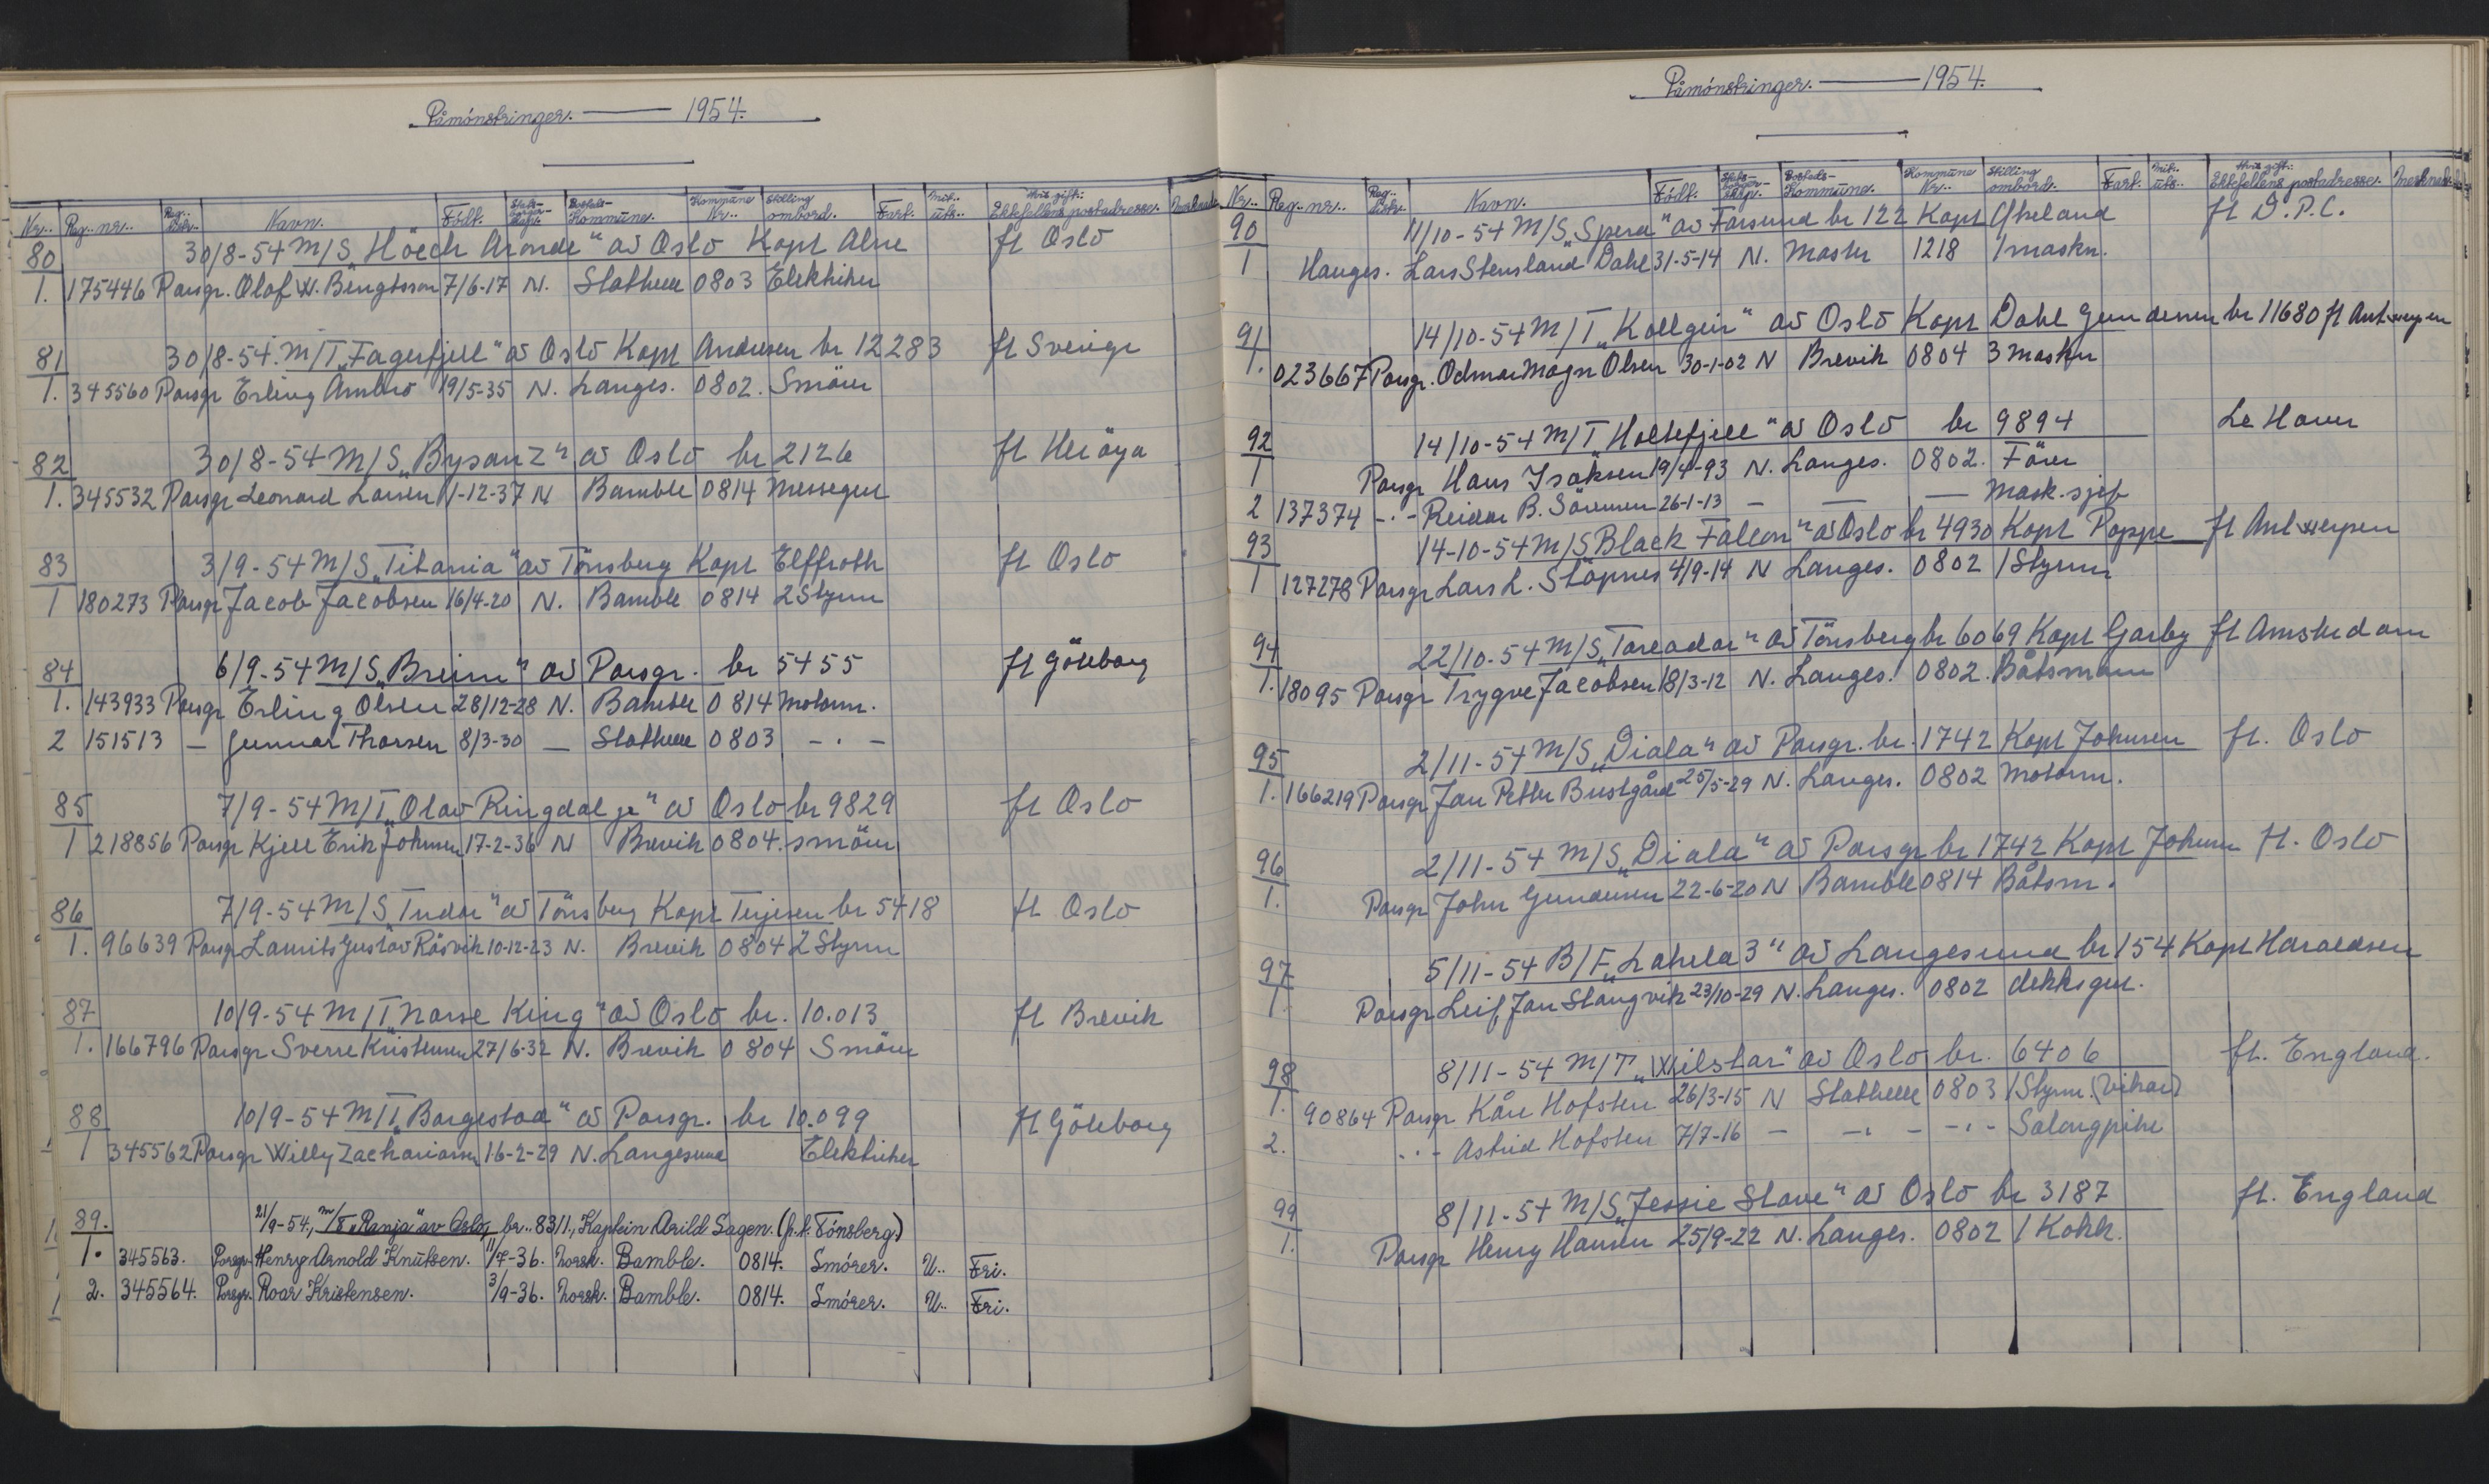 Påmönstringer. 1954.
Nr.. Reg..nr.. Reg.. distr.. Navn. Födt. Stats-borger-skap. Bosteds-Kommune. Kommune Nr.. Stilling ombord. Fart. Mil.. uts.. Hvis gift: Ektefellens postadresse.
80 30/8-54 M/S „Höegh Aronde" av Oslo Kapt Alne ft Oslo
1. 175446 Porsgr. Olof W. Bengtsson 7/6-17 N. Stathelle 0803 Elektriker
81 30/8-54. M/T „Fagerfjell" av Oslo Kapt Andresen br 12283 ft Sverige
1. 345560 Porsgr Erling Ambro 19/5-35 N. Langes. 0802. Smörer
82 30/8-54 M/S „Bysanz" av Oslo br 2126 ft Heröya
1. 345532 Porsgr Leonard Larsen 1-12-37 N Bamble 0814 Messegutt
83 3/9-54 M/S „Titania" av Tönsberg Kapt Elffroth ft Oslo
1 180273 Porsgr Jacob Jacobsen 16/4-20 N. Bamble 0814 2 Styrm
84 6/9-54 M/S „Breim" av Porsgr. br 5455 ft Göteborg
1. 143933 Porsgr Erling Olsen 28/12-28 N. Bamble 0814 Motorm.
2 151513 — Gunnar Thorsen 8/3-30 — Stathelle 0803 - . -
85 7/9-54 M/T „Olav Ringdal jr" av Oslo br 9829 ft Oslo
1 218856 Porsgr Kjell Erik Johnsen 17-2-36 N Brevik 0804. smörer
86 7/9-54 M/S „Tudor" av Tönsberg Kapt Terjesen br 5418 ft Oslo
1. 96639 Porsgr Laurits Gustav Räsvik 10-12-23 N. Brevik 0804 2 Styrm
87 10/9-54 M/T „Norse King" av Oslo br. 10.013 ft Brevik
1. 166796 Porsgr Sverre Kristensen 27/6-32 N. Brevik 0804 Smörer
88 10/9-54 M/T „Borgestad" av Porsgr. br 10.099 ft Göteborg
1 345562 Porsgr Willy Zachariassen 16-2-29 N. Langesund Elektriker
89. 21/9-54., m/T „Ranja" av Oslo, br.. 8311., Kaptein Arild Sagen. (f.t. Tönsberg.)
1. 345563. Porsgr. Henry Arnold Knutsen. 11/7-36. Norsk. Bamble. 0814. Smörer. U.. Fri.
2. 345564. Porsgr. Roar Kristensen. 3/9-36. Norsk. Bamble. 0814. Smörer. U.. Fri.
Påmönstringer. 1954.
Nr.. Reg..nr.. Reg.. distr. Navn. Födt. Stats-borger-skap. Bosteds-Kommune. Kommune Nr.. Stilling ombord. Fart. Mil.. uts.. Hvis gift: Ektefellens postadresse.
90 11/10-54 M/S „Spera" av Farsund br 122 Kapt ft D.P.C.
1 Hauges. Lars Stensland Dahl 31-5-14 N. 1218 1 maskn.
91 14/10-54 M/T „Kollgeir" av Oslo Kapt Dahl Gundersen br 11680 ft Antwerpen
1. 023667 Porsgr. Odmar Magn Olsen 30-1-02 N Brevik 0804 3 maskn
92 14/10-54 M/T „Holtefjell" av Oslo br 9894 Le Havre
1 Porsgr Hans Isaksen 19/4-93 N. Langes. 0802. Förer
2 137374 -.- Reidar B. Sörensen 26-1-13 — — — Mask.sjef
93 14-10-54 M/S „Black Falcon" av Oslo br 4930 Kapt Poppe ft Antwerpen
1 127278 Porsgr Lars L. Stöpnes 4/9-14 N Langes. 0802 1 Styrm
94 22/10-54 M/S „Toreador" av Tönsberg br 6069 Kapt Garby ft Amsterdam
1. 18095 Porsgr Trygve Jacobsen 18/3-12 N. Langes. 0802. Båtsmann
95 2/11-54 M/S „Diala" av Porsgr. br. 1742 Kapt Johnsen ft. Oslo
1. 166219 Porsgr Jan Petter Bustgård 25/5-29 N. Langes. 0802 Motorm.
96 2/11-54 M/S „Diala" av Porsgr br 1742 Kapt Johnsen ft. Oslo
1. Porsgr John Gundersen 22-6-20 N Bamble 0814 Båtsm.
97 5/11-54 B/F „Lakela 3" av Langesund br 154 Kapt Haraldsen
1. Porsgr Leif Jan Stangvik 23/10-29 N. Langes. 0802 dekksgut.
98 8/11-54 M/T „Wilstar" av Oslo br. 6406 ft. England.
1. 90864 Porsgr Kåre Hofsten 26/3-15 N Stathelle 0803 1 Styrm. (vikar)
2. -.- Astrid Hofsten 7/7-16 — -.- -.- Salongpike
99 8/11-54 M/S „Jessie Stove" av Oslo br 3187 ft. England
1. Porsgr Henry Hansen 25/9-22 N. Langes. 0802 1 Kokk.